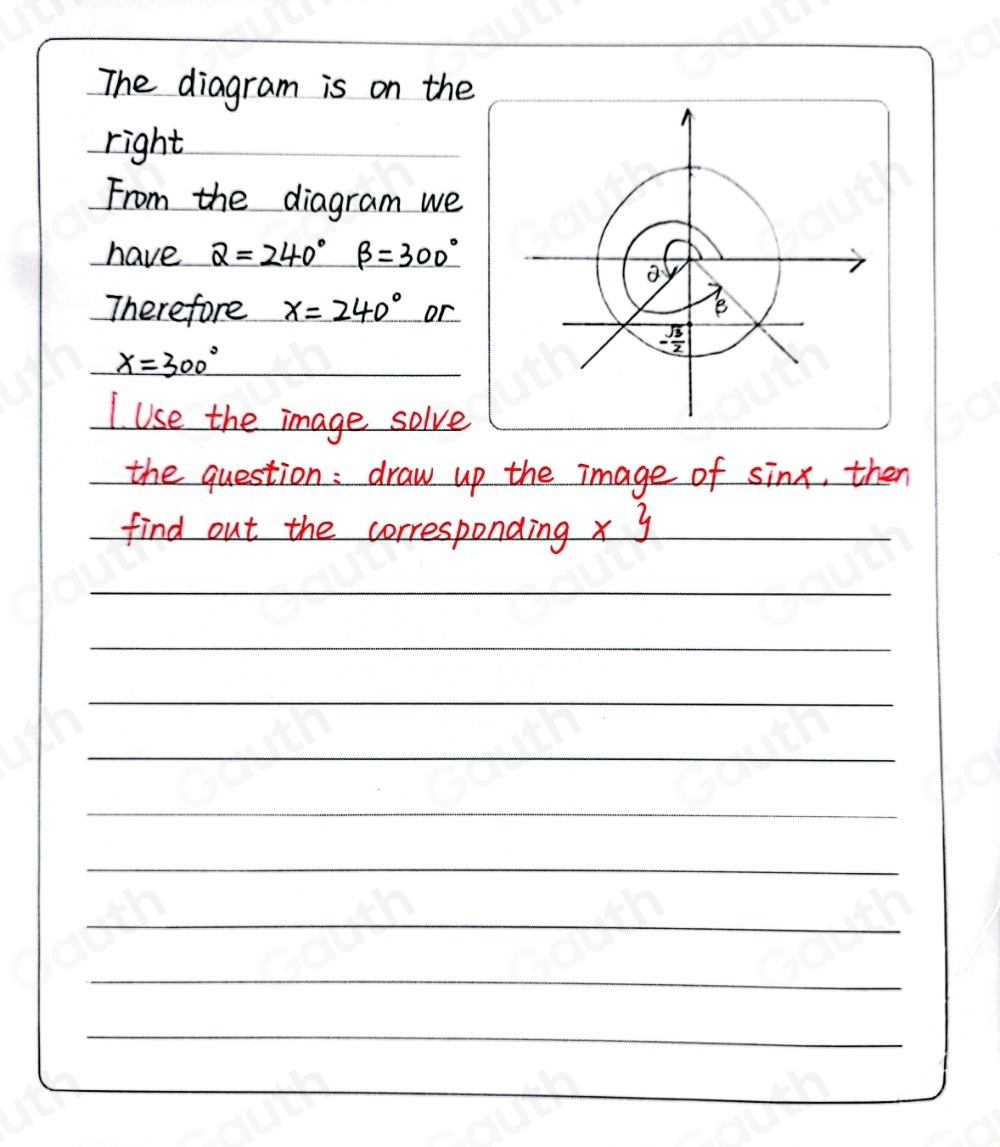 The diagram is on the
right
From the diagram we
have α = 240° β = 300°
Therefore x = 240° or
x = 300°
[ Use the image solve
the question : draw up the image of sinx, then
find out the corresponding x }
α
β
-√3/2
Gauth